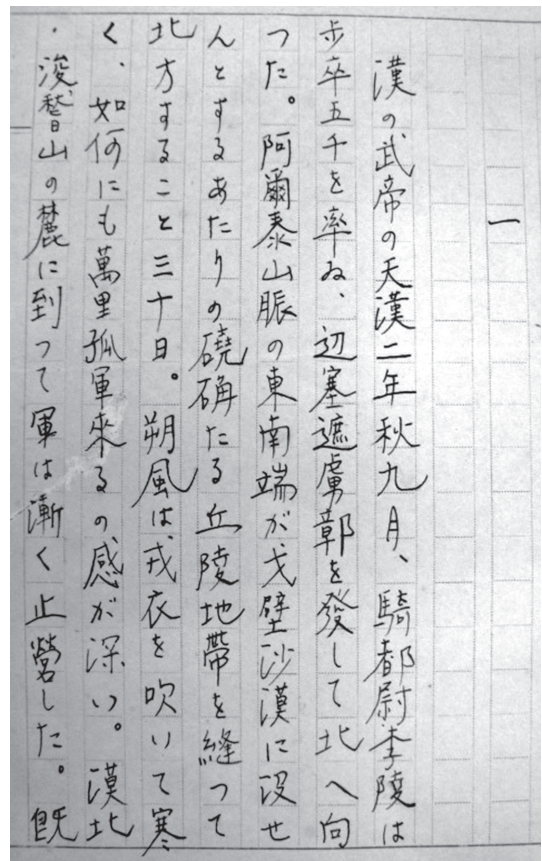 一
漢の武帝の天漢二年秋九月、騎都尉李陵は
歩卒五千を率ゐ、辺塞遮虜鄣を發して北へ向
つた。阿爾泰山脈の東南端が戈壁沙漠に没せ
んとするあたりの磽确たる丘陵地帶を縫つて
北方すること三十日。朔風は戎衣を吹いて寒
く、如何にも萬里孤軍來るの感が深い。漠北
・浚稽山の麓に到つて軍は漸く止營した。既